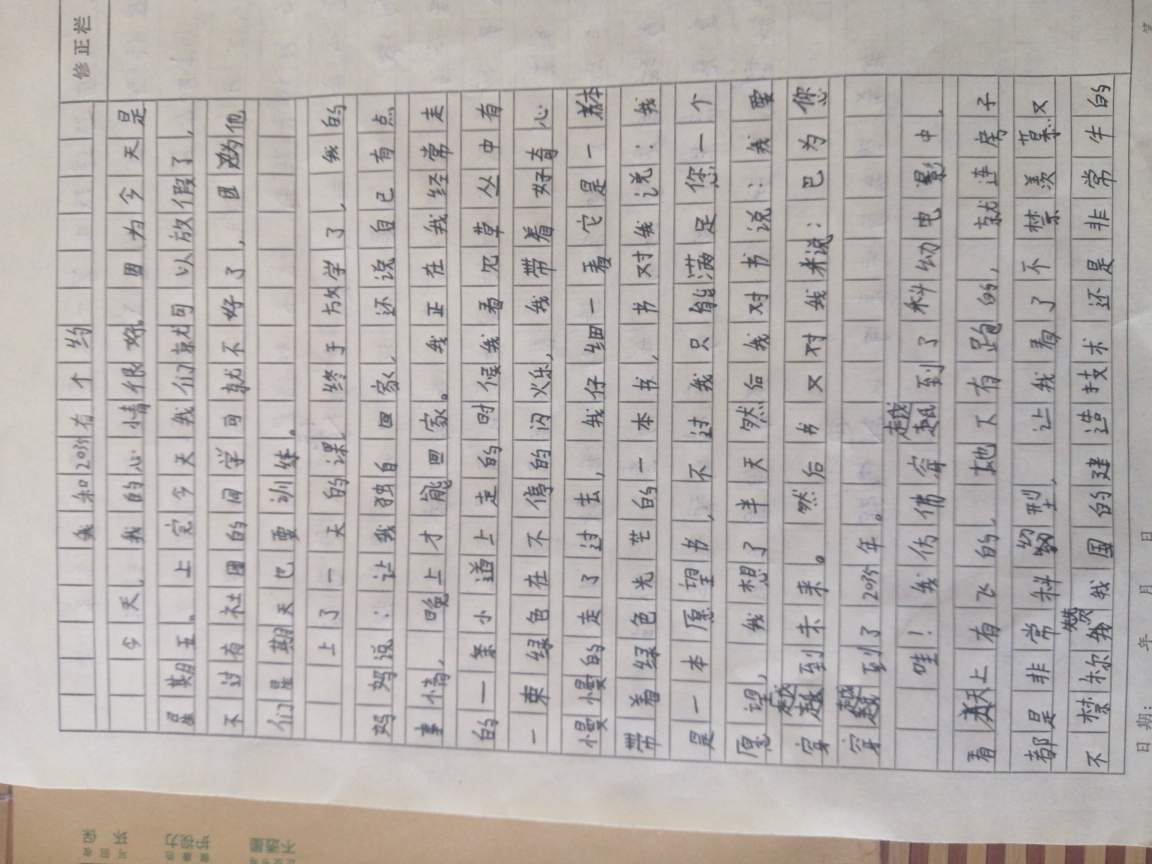 修正栏
我和2035有个约
今天,我的心情很好。因为今天是
星期五。上完今天我们就可以放假了,
不过有社团的同学可就不好了,因为他
们星期天也要训练。
上了一天的课,终于放学了,我的
妈妈说:让我独自回家,还说自己有点
事情,晚上才能回家。我正在我经常走
的一条小道上走的时候我看见草丛中有
一束绿色在不停的闪火乐,我带着好奇心
慢慢的走了过去,我仔细一看它是一本
带着绿色光芒的一本书,书对我说:我
是一本愿望书,不过我只能满足您一个
愿望,我想了半天然后我对书说:我要
穿越到未来。然后书又对我说:巴为您
穿越到了2035年。
哇!我仿佛穿越到了科幻电影中,
看天上有飞的,地下有跑的,就连房子
都是非常科幻型,让我看了不禁羡慕又
不禁称赞我国的建造技术还是非常牛的
日期: 年 月 日